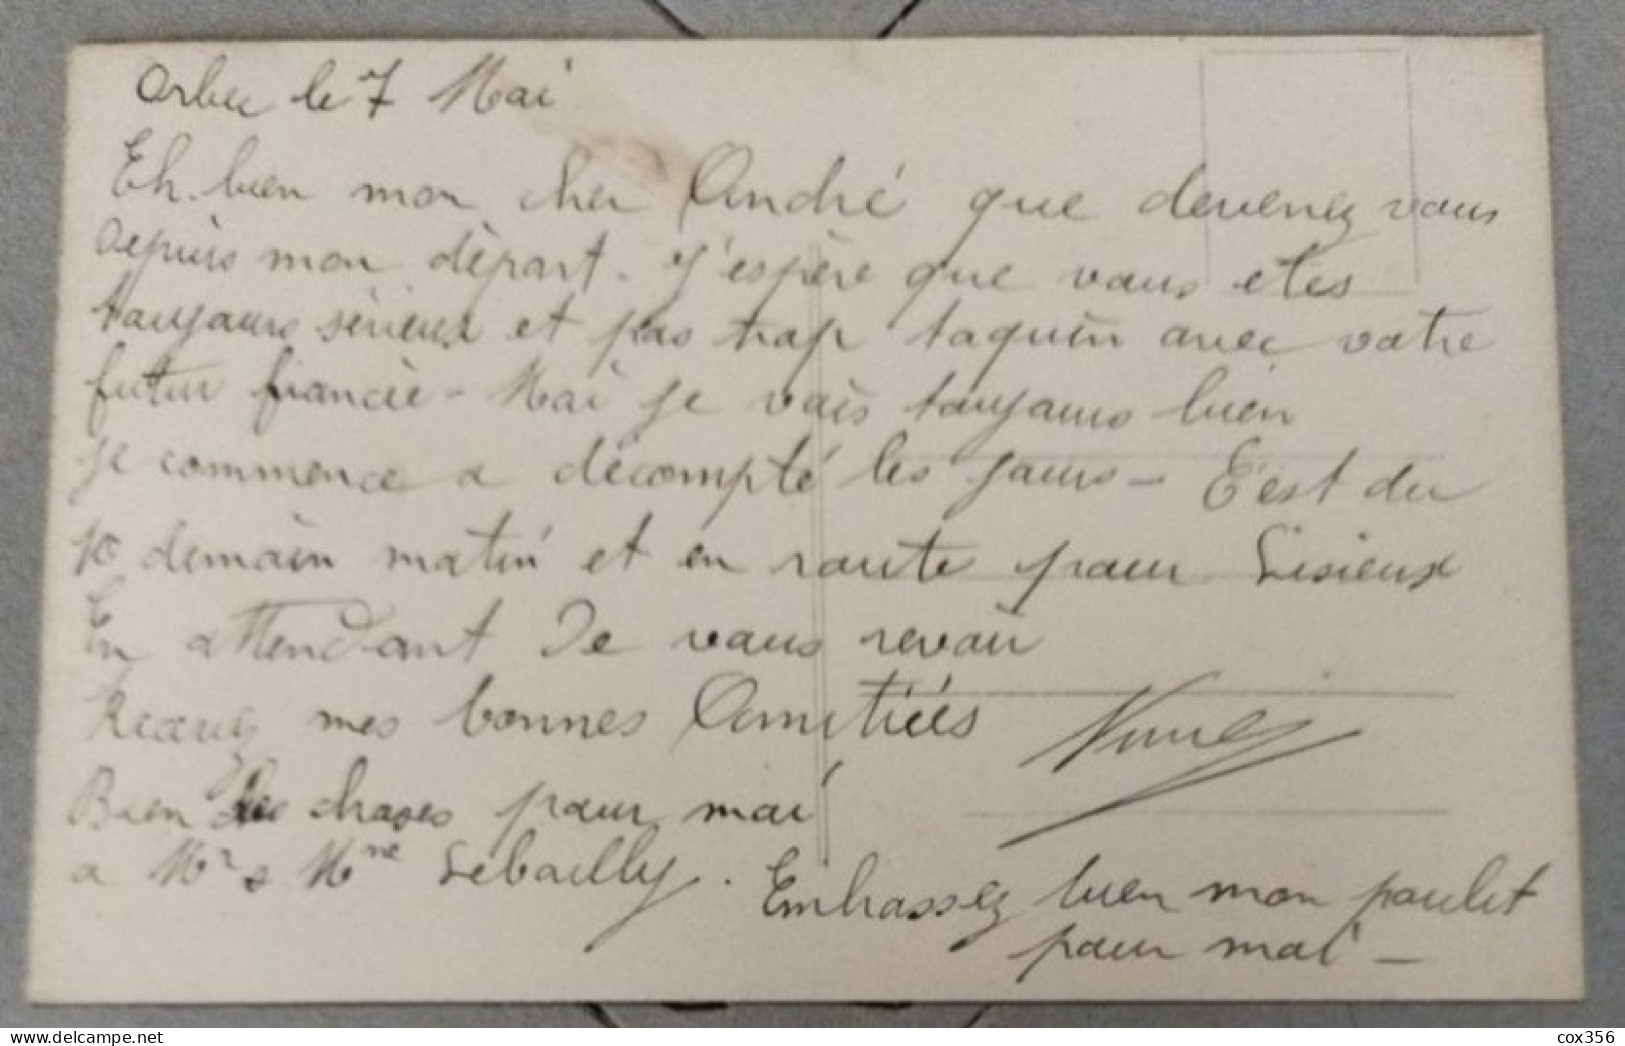 Orbec le 7 Mai
Eh bien mon cher André que devenez vous
depuis mon départ. J'espère que vous etes
toujours sérieux et pas trop taquin avec votre
futur fiancée - Moi je vais toujours bien
je commence a décompté les jours - C'est du
10 demain matin et en route pour Lisieux
En attendant De vous revoir
Recevez mes bonnes Amitiées
Bien des choses pour moi
a Mr & Mme Lebailly.
Embrassez bien mon poulet
pour moi -
cox356